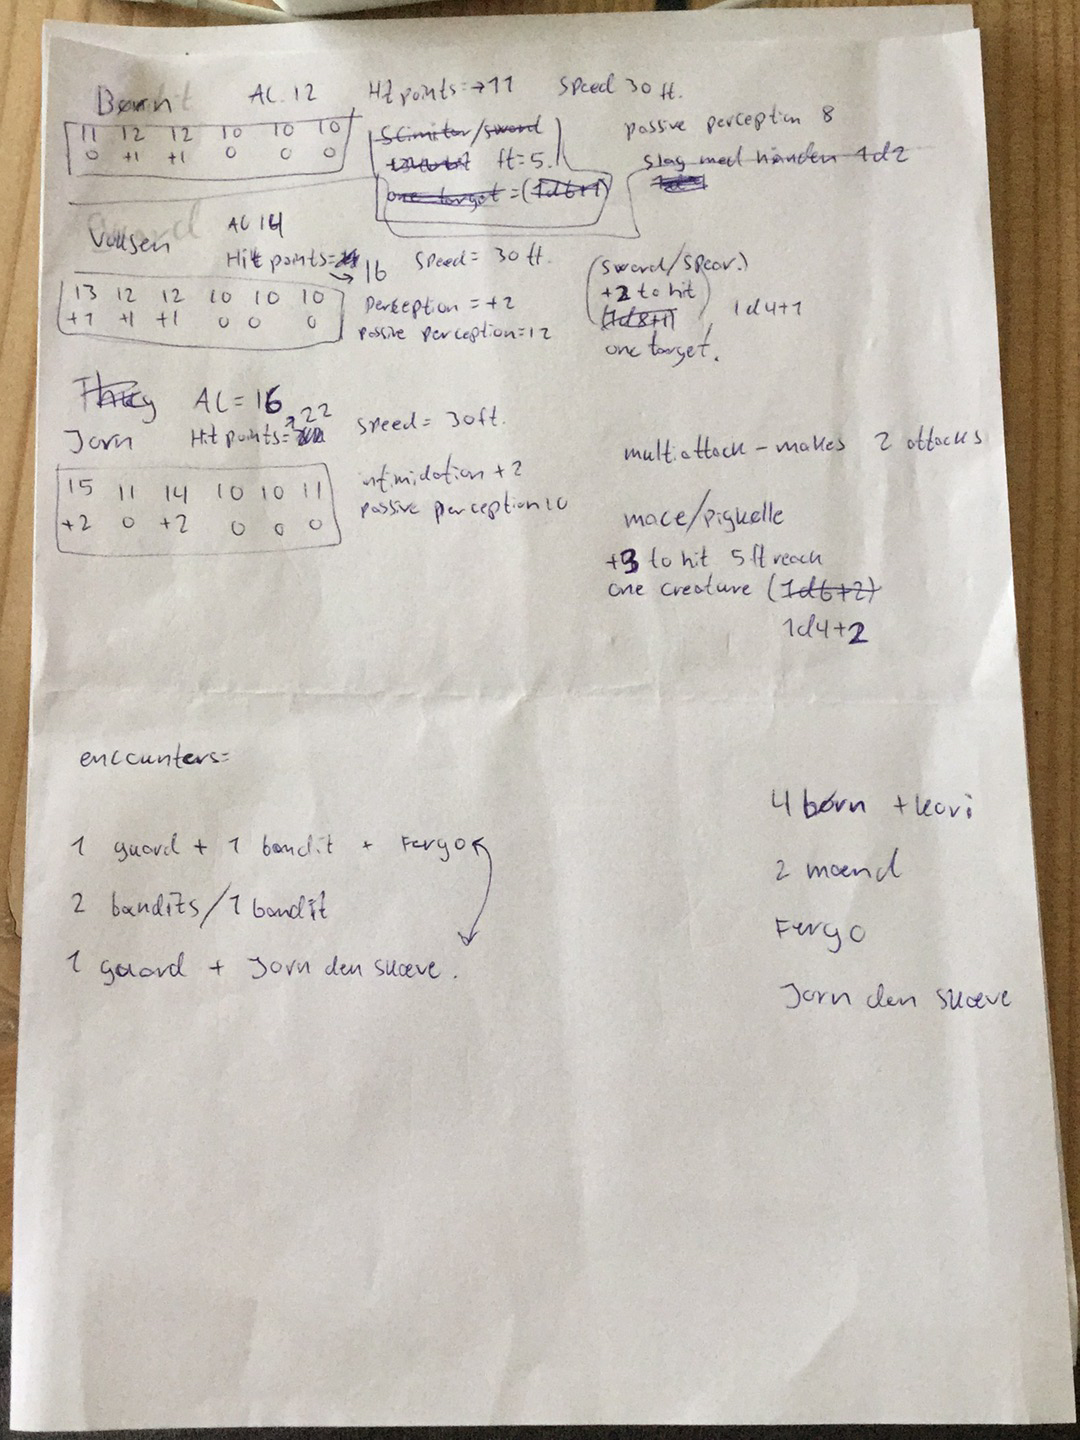 Børn AC. 12 Hit points=→11 Speed 30 ft.
11 12 12 10 10 10
0 +1 +1 0 0 0
Scimitar/sword
ft=5.
one target = (1d6+1)
passive perception 8
slag med hånden 1d2
Voksen AC 14
Hit points= →16 Speed= 30 ft.
13 12 12 10 10 10
+1 +1 +1 0 0 0
Perception = +2
passive perception=12
(sword/spear.)
+2 to hit
(1d8+1) 1d4+1
one target.
Thug AC= 16
Jorn Hit points= →22 speed= 30ft.
15 11 14 10 10 11
+2 0 +2 0 0 0
intimidation +2
passive perception 10
multiattack – makes 2 attacks
mace/pigkølle
+3 to hit 5 ft reach
one creature (1d6+2)
1d4+2
encounters=
1 guard + 1 bandit + Fergo
2 bandits/1 bandit
1 guard + Jorn den skæve.
4 børn + kari
2 mænd
Fergo
Jorn den skæve